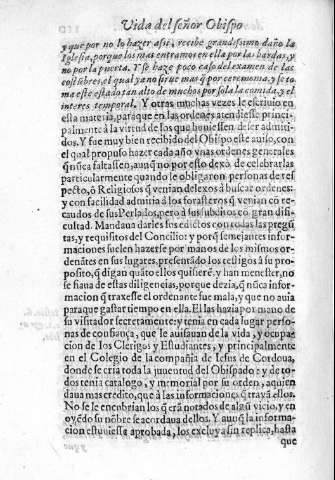 Vida del señor Obispo
y que por no lo hazer assi, recibe grandissimo daño la
Iglesia, porque los mas entramos en ella por las bardas, y
no por la puerta. Y se haze poco caso del examen de las
costũbres, el qual ya no sirue mas q̃ por ceremonia, y se to
ma este estado tan alto de muchos por sola la comida, y el
interes temporal. Y otras muchas vezes le escriuio en
esta materia, para que en las ordenes atendiesse princi-
palmente à la virtud de los que huuiessen de ser admiti-
dos. Y fue muy bien recibido del Obispo este auiso, con
el qual propuso hazer cada año vnas ordenes generales
q̃ nũca faltassen, aunq̃ no por esso dexò de celebrarlas
particularmente quando le obligaron personas de res-
pecto, ò Religiosos q̃ venian de lexos à buscar ordenes:
y con facilidad admitia à los forasteros q̃ venian cõ re-
caudos de sus Perlados, pero à sus subditos cõ gran difi-
cultad. Mandaua darles sus edictos con todas las pregũ
tas, y requisitos del Concilio: y porq̃ semejantes infor-
maciones suelen hazerse por manos de los mismos or-
denãtes en sus lugares, presentãdo los testigos à su pro-
posito, q̃ digan quãto ellos quisierẽ, y han menester, no
se fiaua de estas diligencias, porque dezia, q̃ nũca infor-
macion q̃ traxesse el ordenante fue mala, y que no auia
paraque gastar tiempo en ella. El las hazia por mano de
su visitador secretamente: y tenia en cada lugar perso-
nas de confiança, que le auisauan de la vida, y ocupa-
cion de los Clerigos y Estudiantes, y principalmente
en el Colegio de la compañia de Iesus de Cordoua,
donde se cria toda la juuentud del Obispado: y de to-
dos tenia catalogo, y memorial por su orden, a quien
daua mas credito, que à las informaciones q̃ trayã ellos.
No se le encubrian los q̃ erã notados de algũ vicio, y en
oyẽdo su nõbre se acordaua dellos. Y aunq̃ la informa
cion estuuiesse aprobada, los excluya sin replica, hasta
que